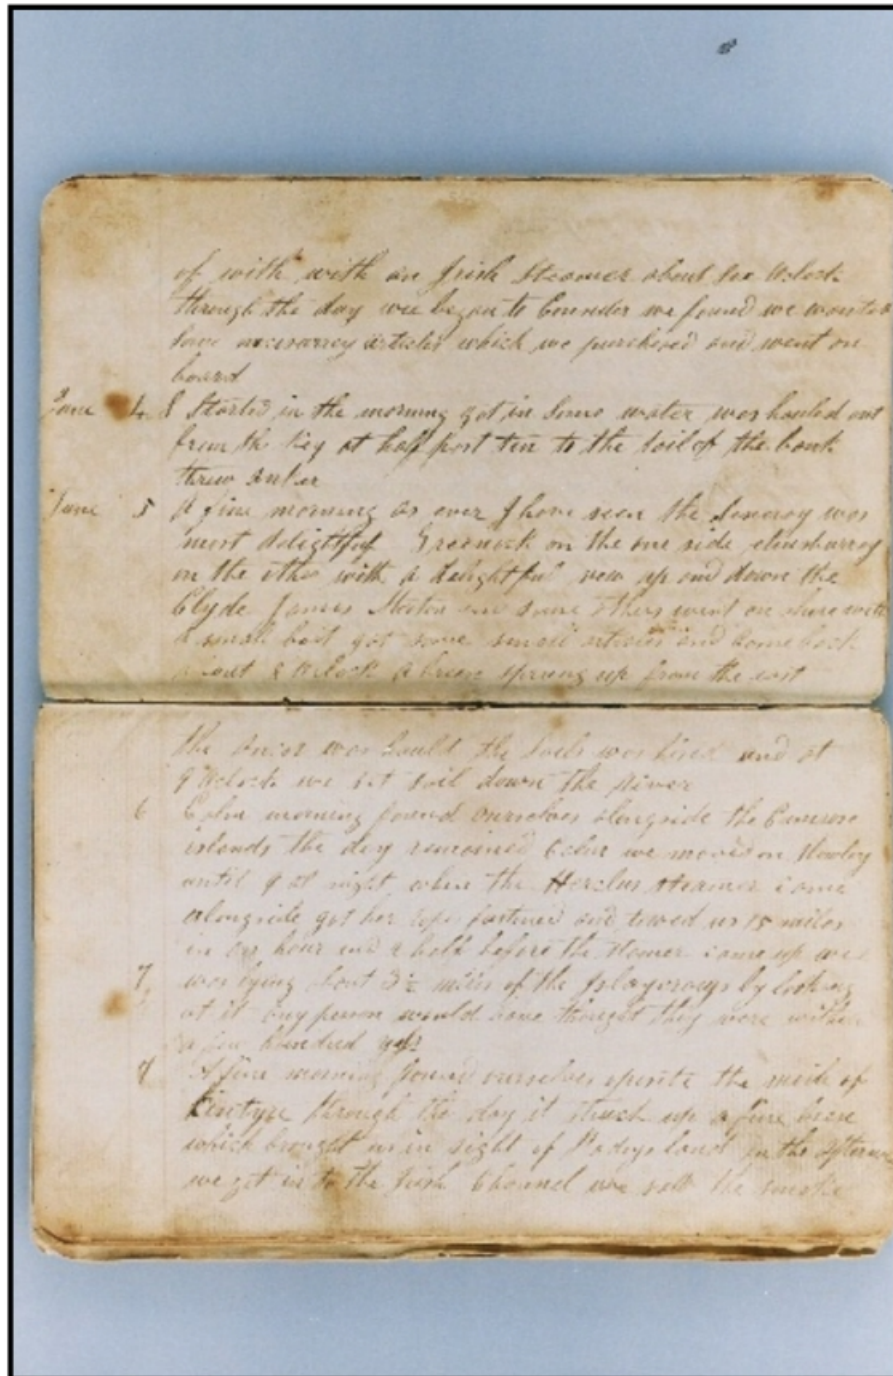 of with with an Irish Steamer about six Oclock
through the day wee began to Consider we found we wanted
some necessarey articles which we purchesed and went on
board
June 4 I Started in the morning got in some water was hauled out
from the key at half past ten to the tail of the bank
threw anker
June 5 A fine morning as ever I have seen the seneray was
most delightful Greenock on the one side
on the other with a delightful vew up and down the
Clyde James Morton and some others went on shore with
a small boat got some small articles and came back
about 2 Oclock a breese sprung up from the east
the ancor was hauld the sails was and at
9 Oclock we set sail down the River
6 Calm morning found ourselves alongside the
islands the day remained Calm we moved on slowley
until 9 at night when the steamer came
alongside got her rope fastened and towed us 15 miles
in an hour and a half before the stemer came up we
7 was lying about 3½ miles of the by looking
at it any person would have thought they were within
a few hundred yds
8 A fine morning found ourselves oposite the of
Kintyre through the day it struck up a fine brese
which brought us in sight of Padeys land in the afternoon
we got in to the Irish Channel we saw the smoke